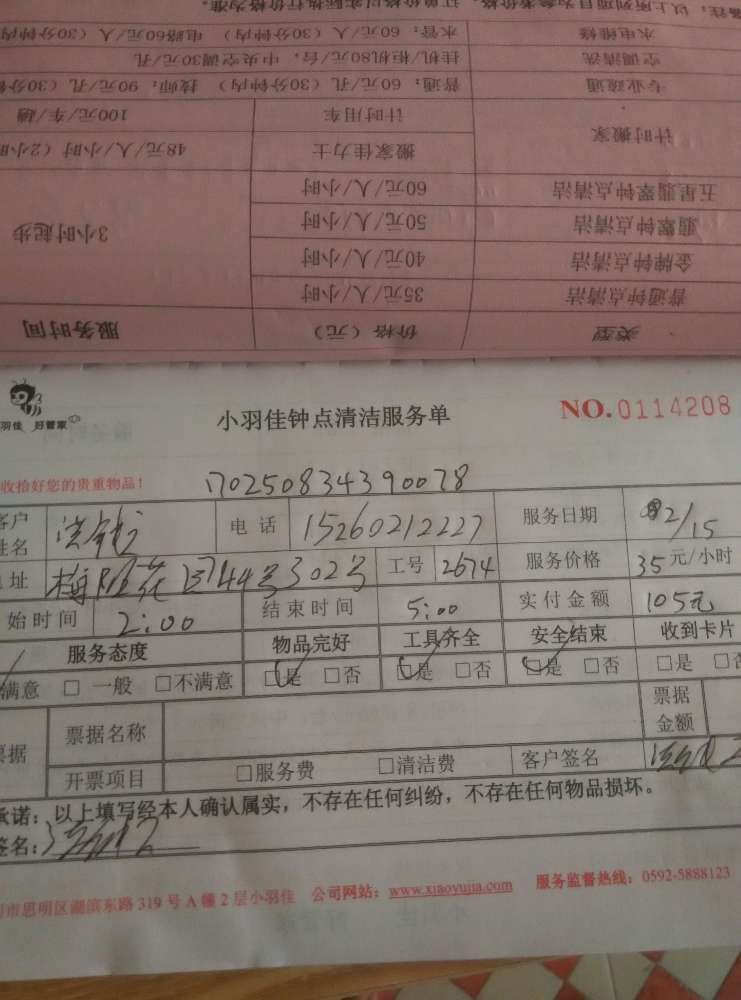 备注：以上所列项目为参考价格，订单价格以实际执行价格为准。
水电维修 水管：60元/人（30分钟内） 电路60元/人（30分钟内
空调清洗 挂机/柜机80元/台，中央空调30元/孔
专业疏通 普通：60元/孔（30分钟内） 技师：90元/孔（30分
计时搬家 计时用车 100元/车/趟
搬家佳力士 48元/人/小时（2小
五星翡翠钟点清洁 60元/人/小时 3小时起步
翡翠钟点清洁 50元/人/小时
金牌钟点清洁 40元/人/小时
普通钟点清洁 35元/人/小时
类型 价格（元） 服务时间
羽佳 好管家
小羽佳钟点清洁服务单
NO.0114208
收拾好您的贵重物品！
170250834390078
客户姓名 洪钱 电话 15260212227 服务日期 2/15
址 梅阳花园44号302号 工号 2674 服务价格 35元/小时
始时间 2:00 结束时间 5:00 实付金额 105元
服务态度 物品完好 工具齐全 安全结束 收到卡片
满意 □ 一般 □不满意 □是 □否 □是 □否 □是 □否 □是 □否
票据 票据名称 票据金额
开票项目 □服务费 □清洁费 客户签名
承诺：以上填写经本人确认属实，不存在任何纠纷，不存在任何物品损坏。
签名：
市思明区湖滨东路319号A幢2层小羽佳 公司网站：www.xiaoyujia.com 服务监督热线：0592-5888123